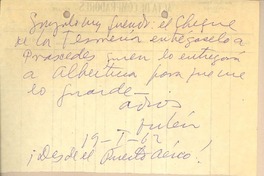 siendo el cheque
de la Tesorería entrégaselo a
Práxedes quien lo entregará
a Albertina para que me
lo guarde —
adiós
Rubén
19-I-62
¡Desde el Puerto Aéreo!